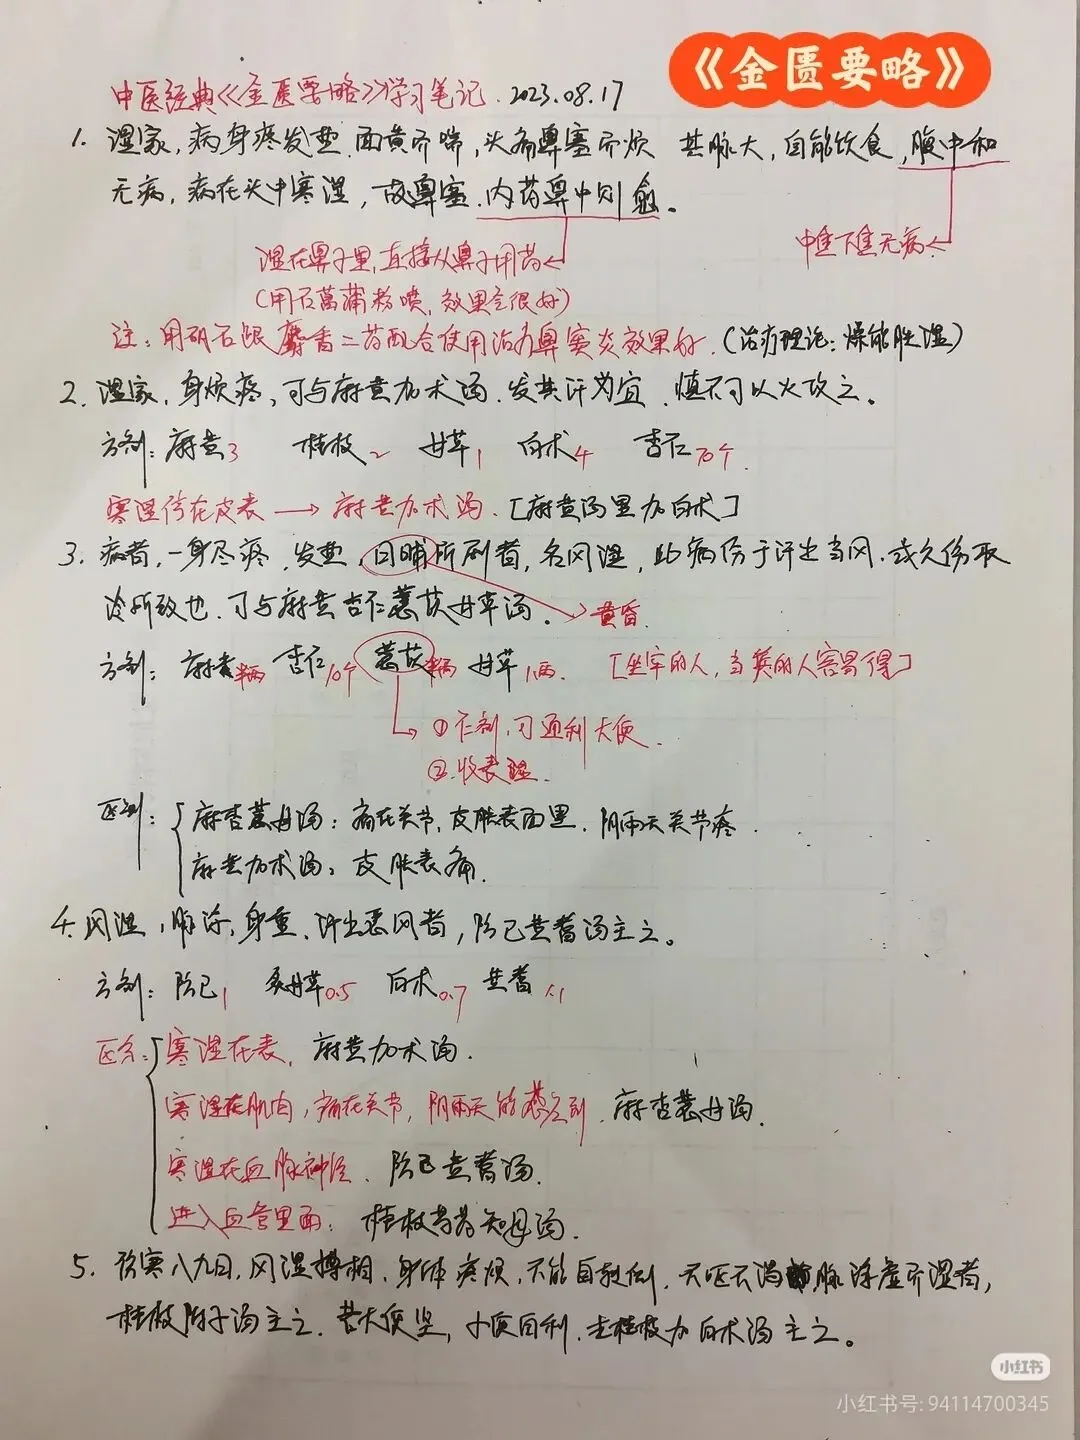 《金匮要略》
中医经典《金匮要略》学习笔记. 2023.08.17
1. 湿家,病身疼发热.面黄而喘,头痛鼻塞而烦 其脉大,自能饮食,腹中和
无病,病在头中寒湿,故鼻塞.内药鼻中则愈。
中焦下焦无病
湿在鼻子里,直接从鼻子用药
(用石菖蒲粉喷,效果会很好)
注:用矾石跟麝香二药配合使用治疗鼻窦炎效果好.(治疗理论:燥能胜湿)
2. 湿家,身烦疼,可与麻黄加术汤.发其汗为宜.慎不可以火攻之。
方剂:麻黄3 桂枝2 甘草1 白术4 杏仁70个.
寒湿停在皮表→麻黄加术汤.[麻黄汤里加白术]
3. 病者,一身尽疼,发热,日晡所剧者,名风湿,此病伤于汗出当风.或久伤取
冷所致也.可与麻黄杏仁薏苡甘草汤。 黄昏.
方剂:麻黄半两 杏仁10个 薏苡半两 甘草1两. [坐牢的人,当 的人容易得]
①仁剂,可通利大便.
②.收表湿.
区别:
麻杏薏甘汤:痛在关节,皮肤表面里.阴雨天关节疼.
麻黄加术汤:皮肤表痛.
4.风湿,脉浮,身重.汗出恶风者,防己黄耆汤主之。
方剂:防己1 炙甘草0.5 白术0.7 黄耆1.1
区分:
寒湿在表,麻黄加术汤.
寒湿在肌肉,痛在关节,阴雨天的 麻杏薏甘汤.
寒湿在血脉神经.防己黄耆汤.
进入血管里面:桂枝芍药知母汤.
5. 伤寒八九日,风湿搏相,身体疼烦,不能自转侧.不呕不渴 脉浮虚而涩者,
桂枝附子汤主之.若大便坚,小便自利.去桂枝加白术汤主之。
小红书
小红书号:94114700345